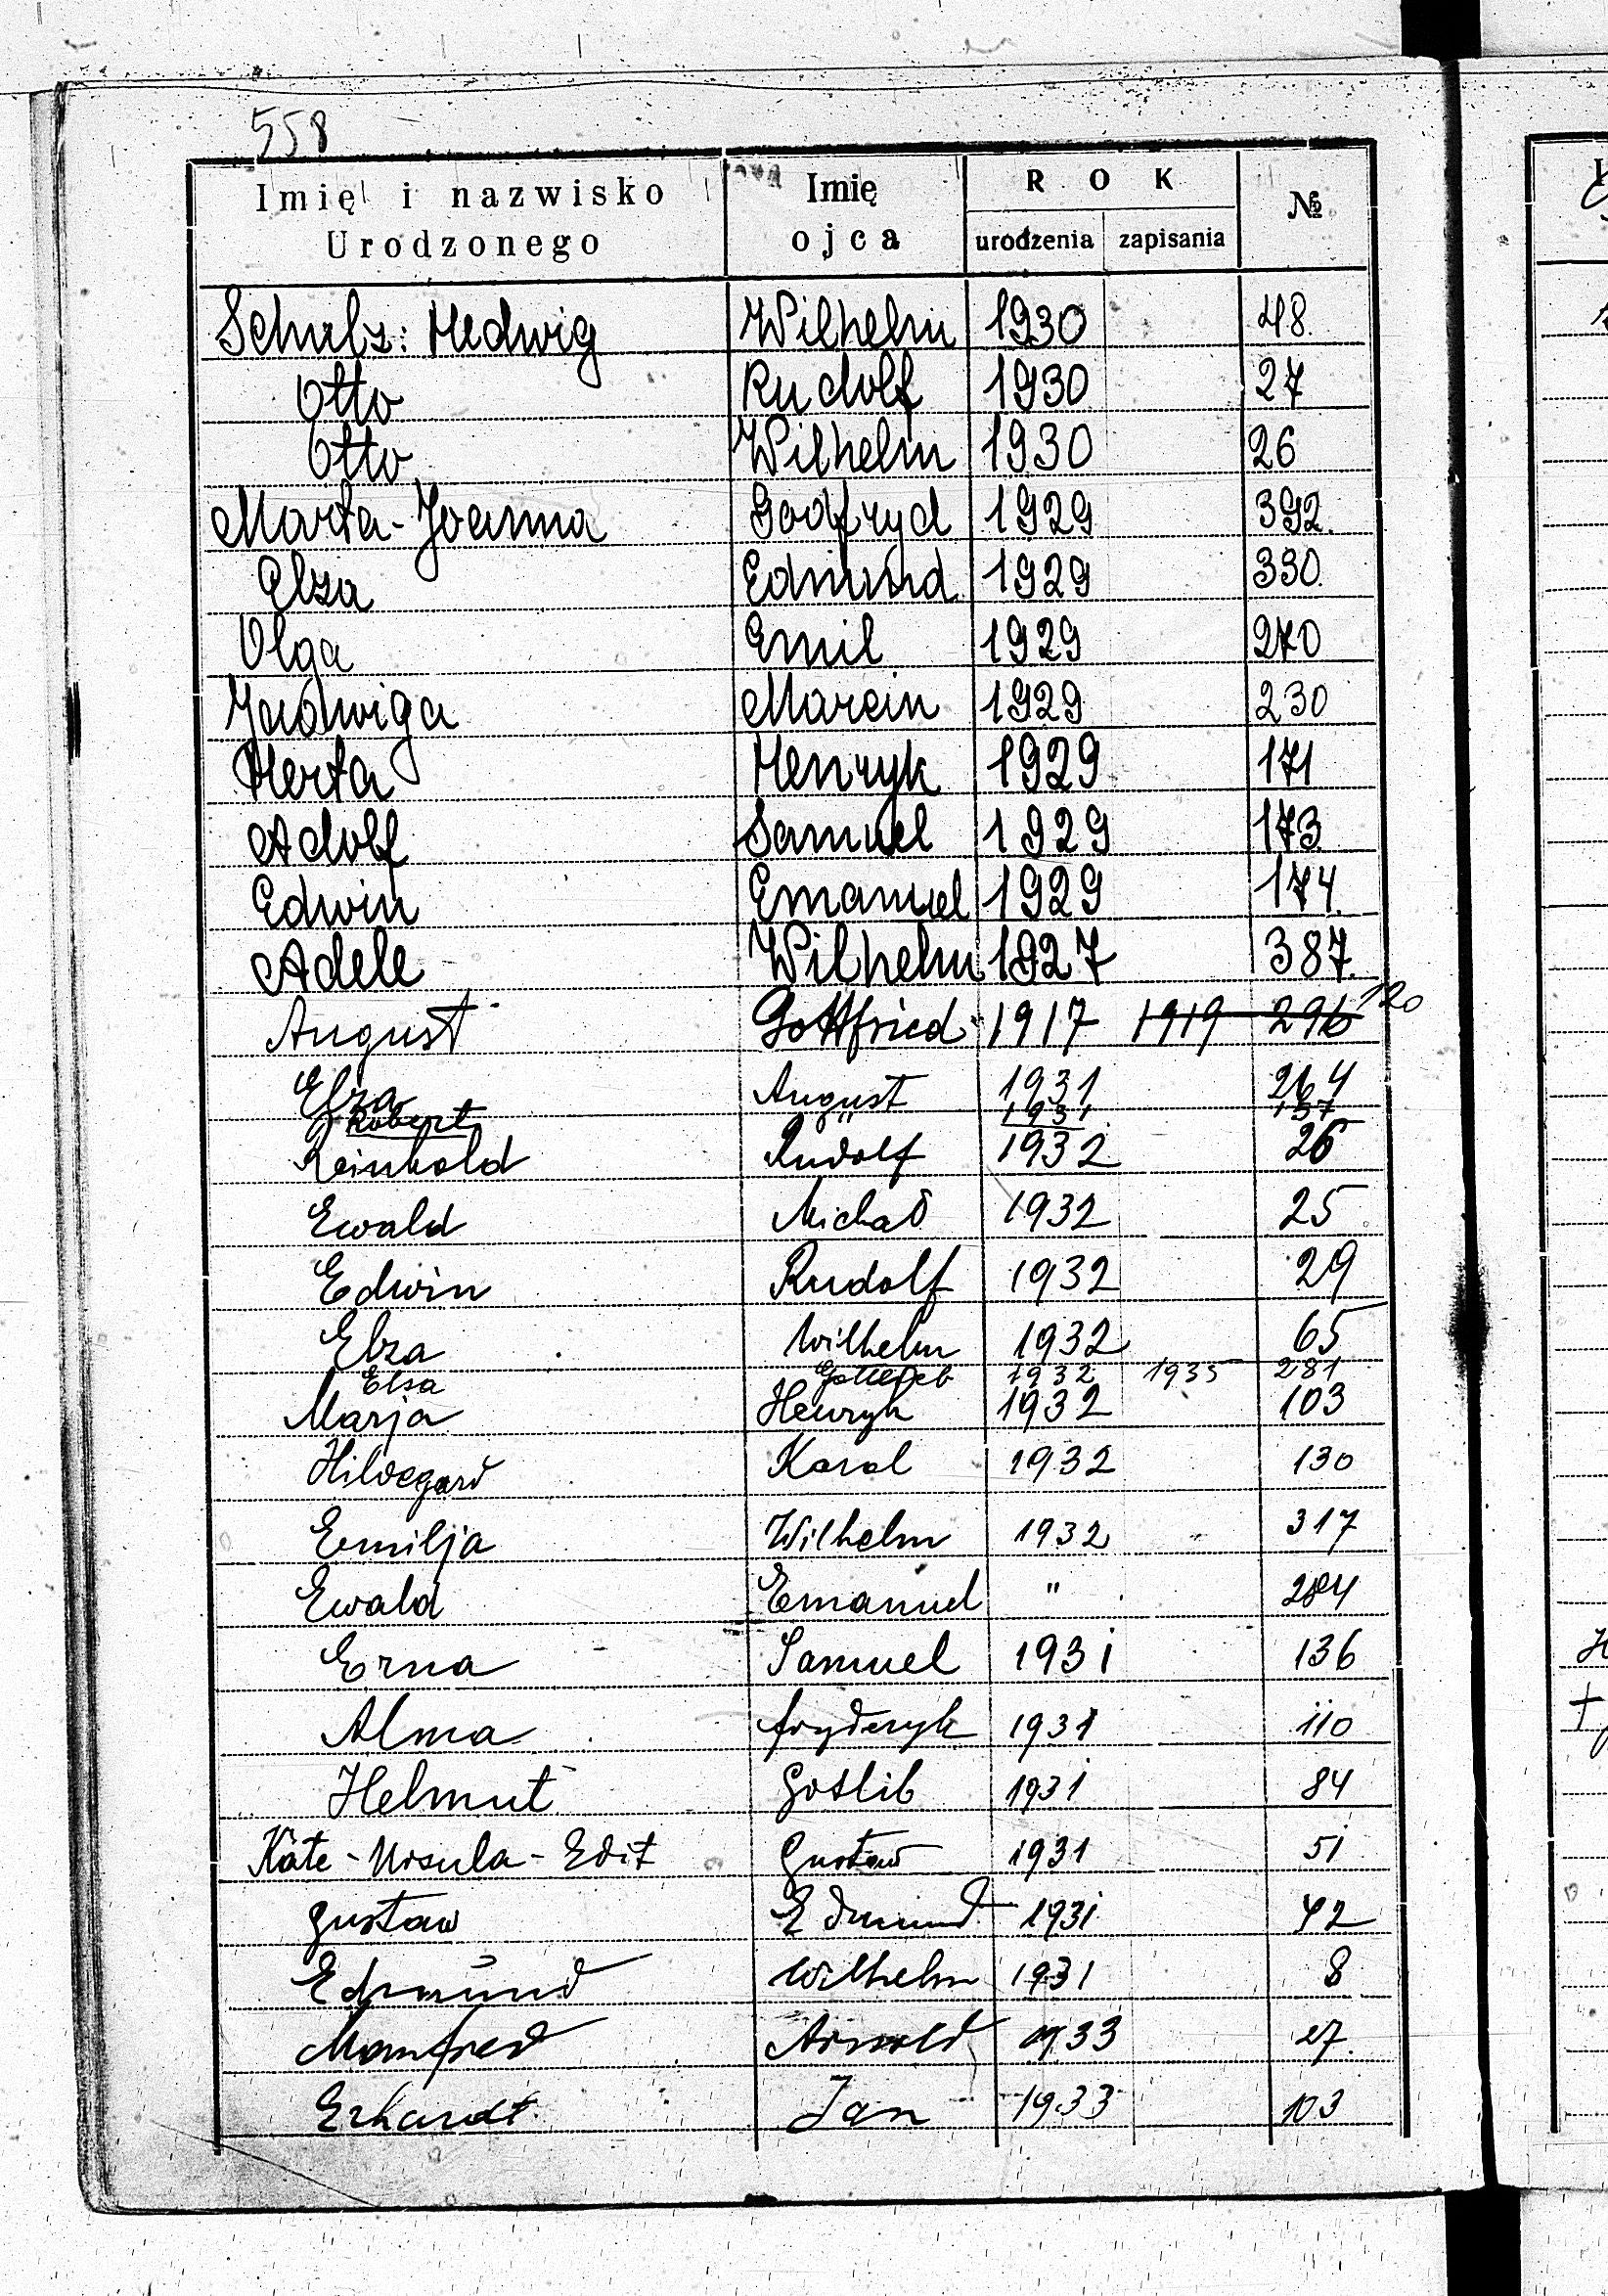 558
Imię i nazwisko Urodzonego Imię ojca ROK urodzenia zapisania №
Schulz: Hedwig Wilhelm 1930 48.
Otto Rudolf 1930 27
Otto Wilhelm 1930 26
Marta-Joanna Godfryd 1929 392.
Elza Edmund 1929 330.
Olga Emil 1929 270
Jadwiga Marcin 1929 230
Herta Henryk 1929 171
Adolf Samuel 1929 173
Edwin Emanuel 1929 174.
Adele Wilhelm 1927 387.
August Gottfried 1917 1919 296 120
Elza August 1931 264
Robert " 1931 157
Reinhold Rudolf 1932 26
Ewald Michał 1932 25
Edwin Rudolf 1932 29
Elza Wilhelm 1932 65
Elsa Gottlieb 1932 1935 281
Marja Henryk 1932 103
Hildegard Karol 1932 130
Emilja Wilhelm 1932 317
Ewald Emanuel "
Erna Samuel 1931 136
Alma Fryderyk 1931 110
Helmut Gotlib 1931 84
Käte-Ursula-Edit Gustaw 1931 51
Gustaw Edmund 1931 42
Edmund Wilhelm 1931 8
Manfred Arnold 1933 27.
Erhardt Jan 1933 103